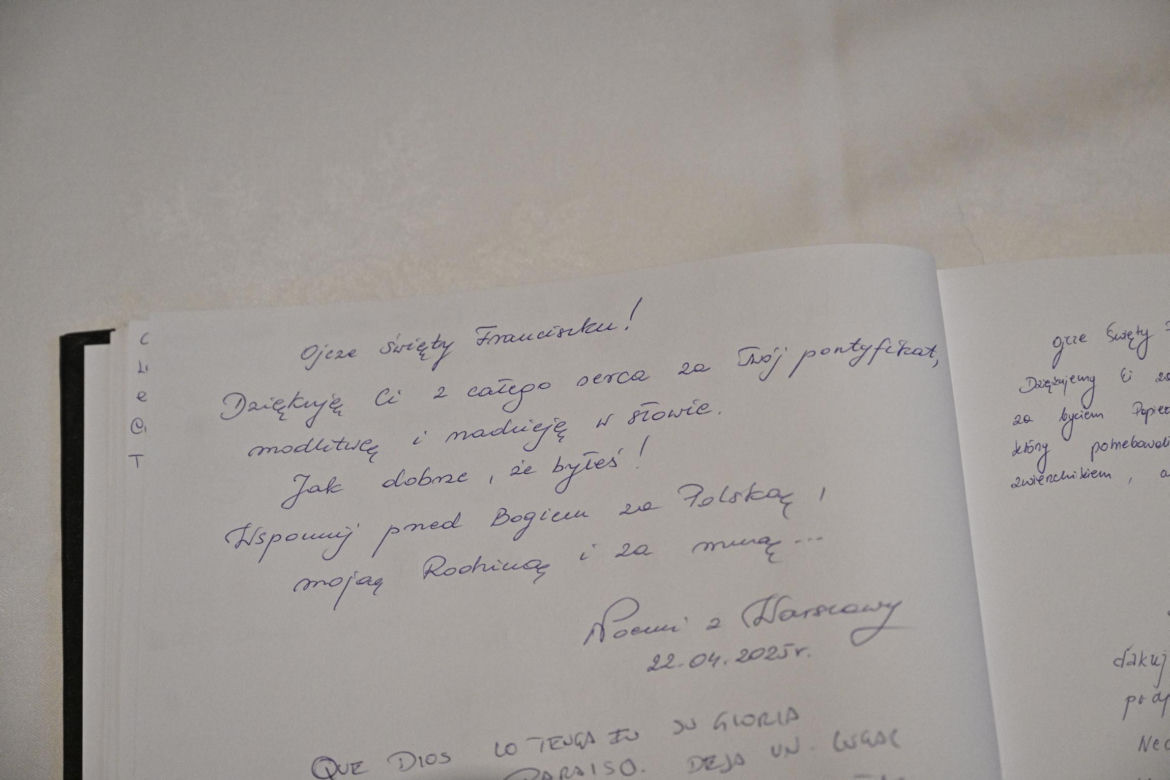 Ojcze Święty Franciszku!
Dziękuję Ci z całego serca za Twój pontyfikat,
modlitwę i nadzieję w słowie.
Jak dobrze, że byłeś!
Wspomnij przed Bogiem za Polską,
moją Rodziną i za mną...
Noemi z Warszawy
22.04.2025r.
QUE DIOS LO TENGA EN SU GLORIA
PARAISO. DEJA UN LUGAR
C
L
e
@
T
Ojcze Święty
Dziękujemy Ci za
za byciem
który potrzebowali
zwierzchnikiem,